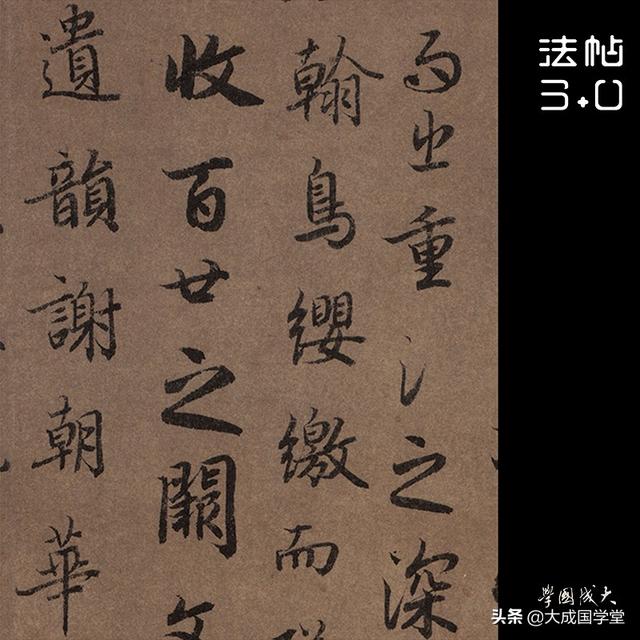 而出重氵之深
翰鳥纓繳而
收百廿之闕文
遺韻謝朝華
法帖
3.0
大成國學
头条 @大成国学堂